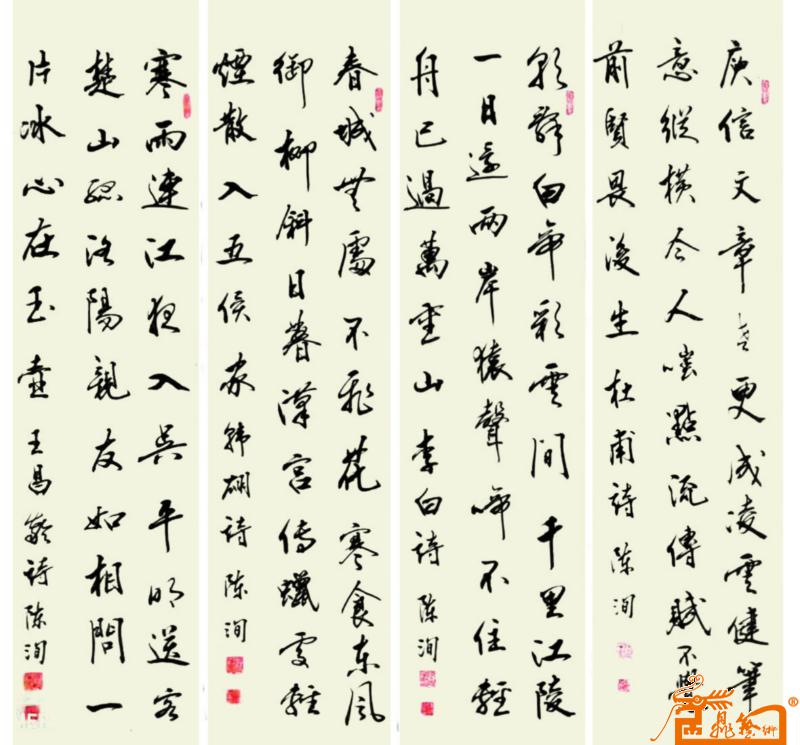 庾信文章老更成凌雲健筆
意縱橫今人嗤點流傳賦不覺
前賢畏後生杜甫詩陳洵
朝辭白帝彩雲間千里江陵
一日還兩岸猿聲啼不住輕
舟已過萬重山李白詩陳洵
春城無處不飛花寒食東風
御柳斜日暮漢宮傳蠟燭輕
煙散入五侯家韓翃詩陳洵
寒雨連江夜入吳平明送客
楚山孤洛陽親友如相問一
片冰心在玉壺王昌齡詩陳洵